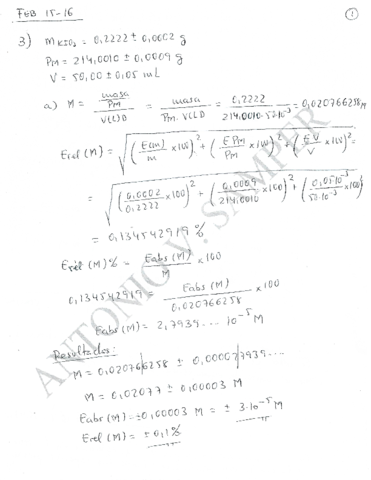 FEB 15-16
①
3) m KIO₃ = 0,2222 ± 0,0002 g
Pm = 214,0010 ± 0,0009 g
V = 50,00 ± 0,05 mL
a) M = (masa/Pm)/V(L)D = masa/(Pm · V(L)D) = 0,2222/(214,0010·50·10⁻³) = 0,020766258 M
Erel (M) = √((E(m)/m × 100)² + (E Pm/Pm × 100)² + (EV/V × 100)²) =
= √((0,0002/0,2222 × 100)² + (0,0009/214,0010 × 100)² + (0,05·10⁻³/50·10⁻³ × 100)²)
= 0,134542919 %
Erel (M) % = Eabs (M)/M × 100
0,134542919 = Eabs (M)/0,020766258 × 100
Eabs (M) = 2,7939.... 10⁻⁵ M
Resultados:
M = 0,020766258 ± 0,000027939...
M = 0,02077 ± 0,00003 M
Eabs (M) = ± 0,00003 M = ± 3·10⁻⁵ M
Erel (M) = ± 0,1%
ANTONIO V. SAMPER